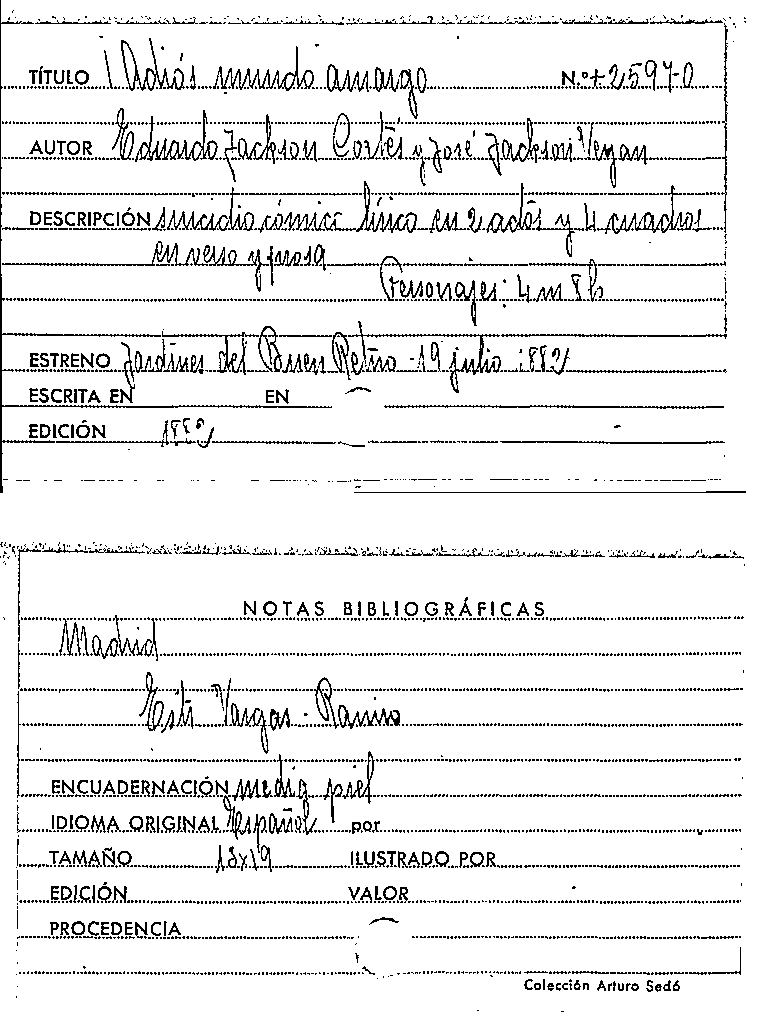 TÍTULO ¡Adiós mundo amargo N.º+25970
AUTOR Eduardo Jackson Cortés y José Jackson Veyan
DESCRIPCIÓN suicidio cómico lírico en 2 actos y 4 cuadros
en verso y prosa
Personajes: 4 m 8 h
ESTRENO Jardines del Buen Retiro - 19 julio 1882
ESCRITA EN EN
EDICIÓN 1882
NOTAS BIBLIOGRÁFICAS
Madrid
Vargas - Ramiro
ENCUADERNACIÓN media piel
IDIOMA ORIGINAL Español por
TAMAÑO 13x19 ILUSTRADO POR
EDICIÓN VALOR
PROCEDENCIA
Colección Arturo Sedó